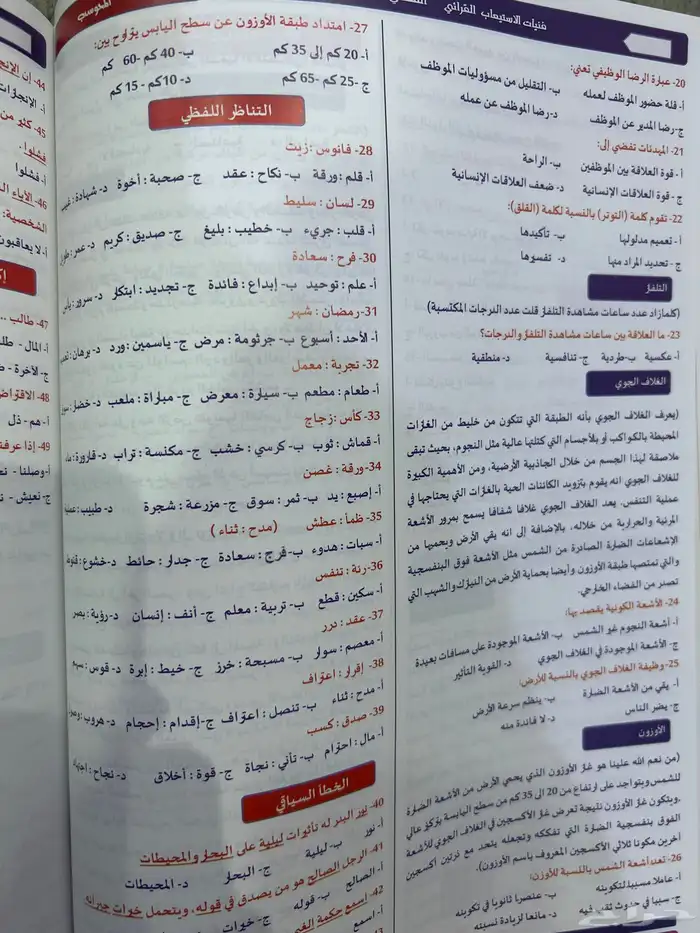 فنيات الاستيعاب القرائي
20- عبارة الرضا الوظيفي تعني:
أ- قلة حضور الموظف لعمله ب- التقليل من مسؤوليات الموظف
ج- رضا المدير عن الموظف د- رضا الموظف عن عمله
21- الميدنات تفضي إلى:
أ- قوة العلاقة بين الموظفين ب- الراحة
ج- قوة العلاقات الإنسانية د- ضعف العلاقات الإنسانية
22- تقوم كلمة (التوتر) بالنسبة لكلمة (القلق):
أ- تعميم مدلولها ب- تأكيدها
ج- تحديد المراد منها د- تفسيرها
التلفاز
(كلما زاد عدد ساعات مشاهدة التلفاز قلت عدد الدرجات المكتسبة)
23- ما العلاقة بين ساعات مشاهدة التلفاز والدرجات؟
أ- عكسية ب- طردية ج- تنافسية د- منطقية
الغلاف الجوي
(يعرف الغلاف الجوي بأنه الطبقة التي تتكون من خليط من الغازات
المحيطة بالكواكب أو بالأجسام التي كتلتها عالية مثل النجوم، بحيث تبقى
ملاصقة لهذا الجسم من خلال الجاذبية الأرضية، ومن الأهمية الكبيرة
للغلاف الجوي انه يقوم بتزويد الكائنات الحية بالغازات التي يحتاجها في
عملية التنفس. يعد الغلاف الجوي غلافا شفافا يسمح بمرور الأشعة
المرئية والحرارية من خلاله، بالإضافة إلى انه يقي الأرض ويحميها من
الإشعاعات الضارة الصادرة من الشمس مثل الأشعة فوق البنفسجية
والتي تمتصها طبقة الأوزون وأيضا بحماية الأرض من النيازك والشهب التي
تصدر من الفضاء الخارجي.
24- الأشعة الكونية يقصد بها:
أ- أشعة النجوم غير الشمس ب- الأشعة الموجودة على مسافات بعيدة
ج- الأشعة الموجودة في الغلاف الجوي د- القوية التأثير
25- وظيفة الغلاف الجوي بالنسبة للأرض:
أ- يقي من الأشعة الضارة ب- ينظم سرعة الأرض
ج- يضر الناس د- لا فائدة منه
الأوزون
(من نعم الله علينا هو غاز الأوزون الذي يحي الأرض من الأشعة الضارة
للشمس ويتواجد على ارتفاع من 20 الى 35 كم من سطح اليابسة بتركيز عالي
،ويتكون غاز الأوزون نتيجة تعرض غاز الأكسجين في الغلاف الجوي للأشعة
الفوق بنفسجية الضارة التي تفككه وتجعله يتحد مع ذرتين أكسجين
آخرين مكونا ثلاثي الأكسجين المعروف باسم الأوزون).
26- تعد أشعة الشمس بالنسبة للأوزون:
أ- عاملا مسببا لتكوينه ب- عنصرا ثانويا في تكوينه
ج- سببا في حدوث ثقب فيه د- مانعا لزيادة نسبته
27- امتداد طبقة الأوزون عن سطح اليابس يتراوح بين:
أ- 20 كم إلى 35 كم ب- 40 كم -60 كم
ج -25 كم -65 كم د- 10كم - 15 كم
التناظر اللفظي
28- فانوس : زيت
أ- قلم : ورقة ب- نكاح : عقد ج- صحبة : أخوة د- شهادة :
29- لسان : سليط
أ- قلب : جريء ب- خطيب : بليغ ج- صديق : كريم د- عمر :
30- فرح : سعادة
أ- علم : توحيد ب- إبداع : فائدة ج- تجديد : ابتكار د- سرور :
31- رمضان : شهر
أ- الأحد : أسبوع ب- جرثومة : مرض ج- ياسمين : ورد د- برهان :
32- تجربة : معمل
أ- طعام : مطعم ب- سيارة : معرض ج- مباراة : ملعب د- خضار :
33- كأس : زجاج
أ- قماش : ثوب ب- كرسي : خشب ج- مكنسة : تراب د- قارورة :
34- ورقة : غصن
أ- إصبع : يد ب- ثمر : سوق ج- مزرعة : شجرة د- طبيب :
35- ظمأ : عطش (مدح : ثناء )
أ- سبات : هدوء ب- فرج : سعادة ج- جدار : حائط د- خشوع :
36- رئة : تنفس
أ- سكين : قطع ب- تربية : معلم ج- أنف : إنسان د- رؤية : بصر
37- عقد : درر
أ- معصم : سوار ب- مسبحة : خرز ج- خيط : إبرة د- قوس :
38- إقرار : اعتراف
أ- مدح : ثناء ب- تنصل : اعتراف ج- إقدام : إحجام د- هروب :
39- صدق : كسب
أ- مال : احترام ب- تأني : نجاة ج- قوة : أخلاق د- نجاح :
الخطأ السياقي
40- نور البدر له تأثيرات ليلية على البحار والمحيطات
أ- نور ب- ليلية ج- البحار د- المحيطات
41- الرجل الصالح هو من يصدق في قوله، ويتحمل خيرات جيرانه
أ- الصالح ب- قوله ج- خيرات
42- اسمع حكمة
أ- اسمع
44- إن
أ- الإنجازات
45- كثر من
فشلوا.
أ- فشلوا
46- الآباء
الشخصية:
أ- لا يعاقبون
47- طالب ..
أ- المال -
ج- الآخرة -
48- الاقتراض
أ- هم - ذل
49- إذا عرفنا
أ- وصلنا -
ج- نعيش -